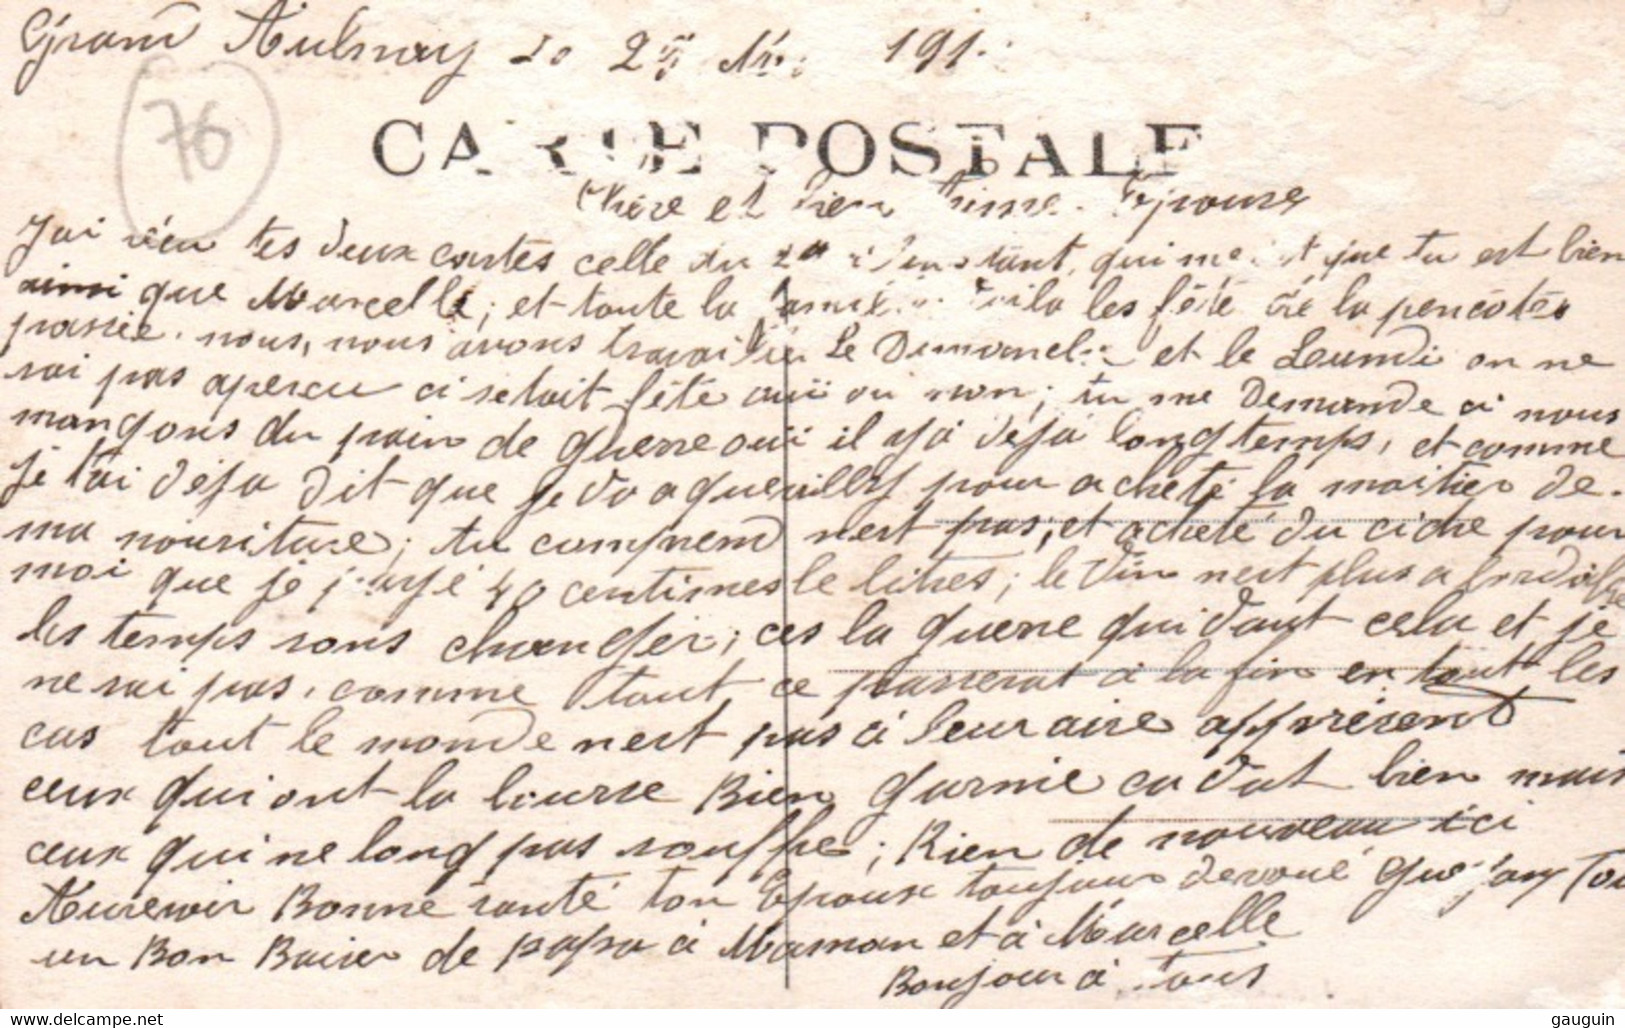 Grand Aulnay le 25 191
76
CARTE POSTALE
Chère et bien Aimé Epouse
J'ai réçu tes deux cartes celle du 20 de l'instant, qui me dit que tu est bien
ainsi que Marcelle, et toute la famille. Voila les fêté de la pencotes
passée. nous, nous avons travailler Le Dimanche et le Lundi on ne
sai pas apercu ci setait fêté ouï ou non; tu me demande ci nous
mangons du pain de guerre ouï il yà déja longtemps, et comme
je t'ai déja dit que je va aquevilly pour acheté la moitier de
ma nouriture; tu comprend nest pas, et acheté du cidre pour
moi que je payé 40 centimes le litres; le Vin nest plus abordable
les temps sons changér; ces la guerre qui vaut cela et je
ne sai pas, comme tout ce passerat à la fin en tout les
cas tout le monde nest pas à leur aire apprésent
ceux qui ont la bourse Bien garnie ca vat bien mais
ceux qui ne long pas souffre; Rien de nouveau ici
Aurevoir Bonne santé ton Epoux toujour dévoué
un Bon Baiser de papa à Maman et à Marcelle
Bonjour à tous
gauguin